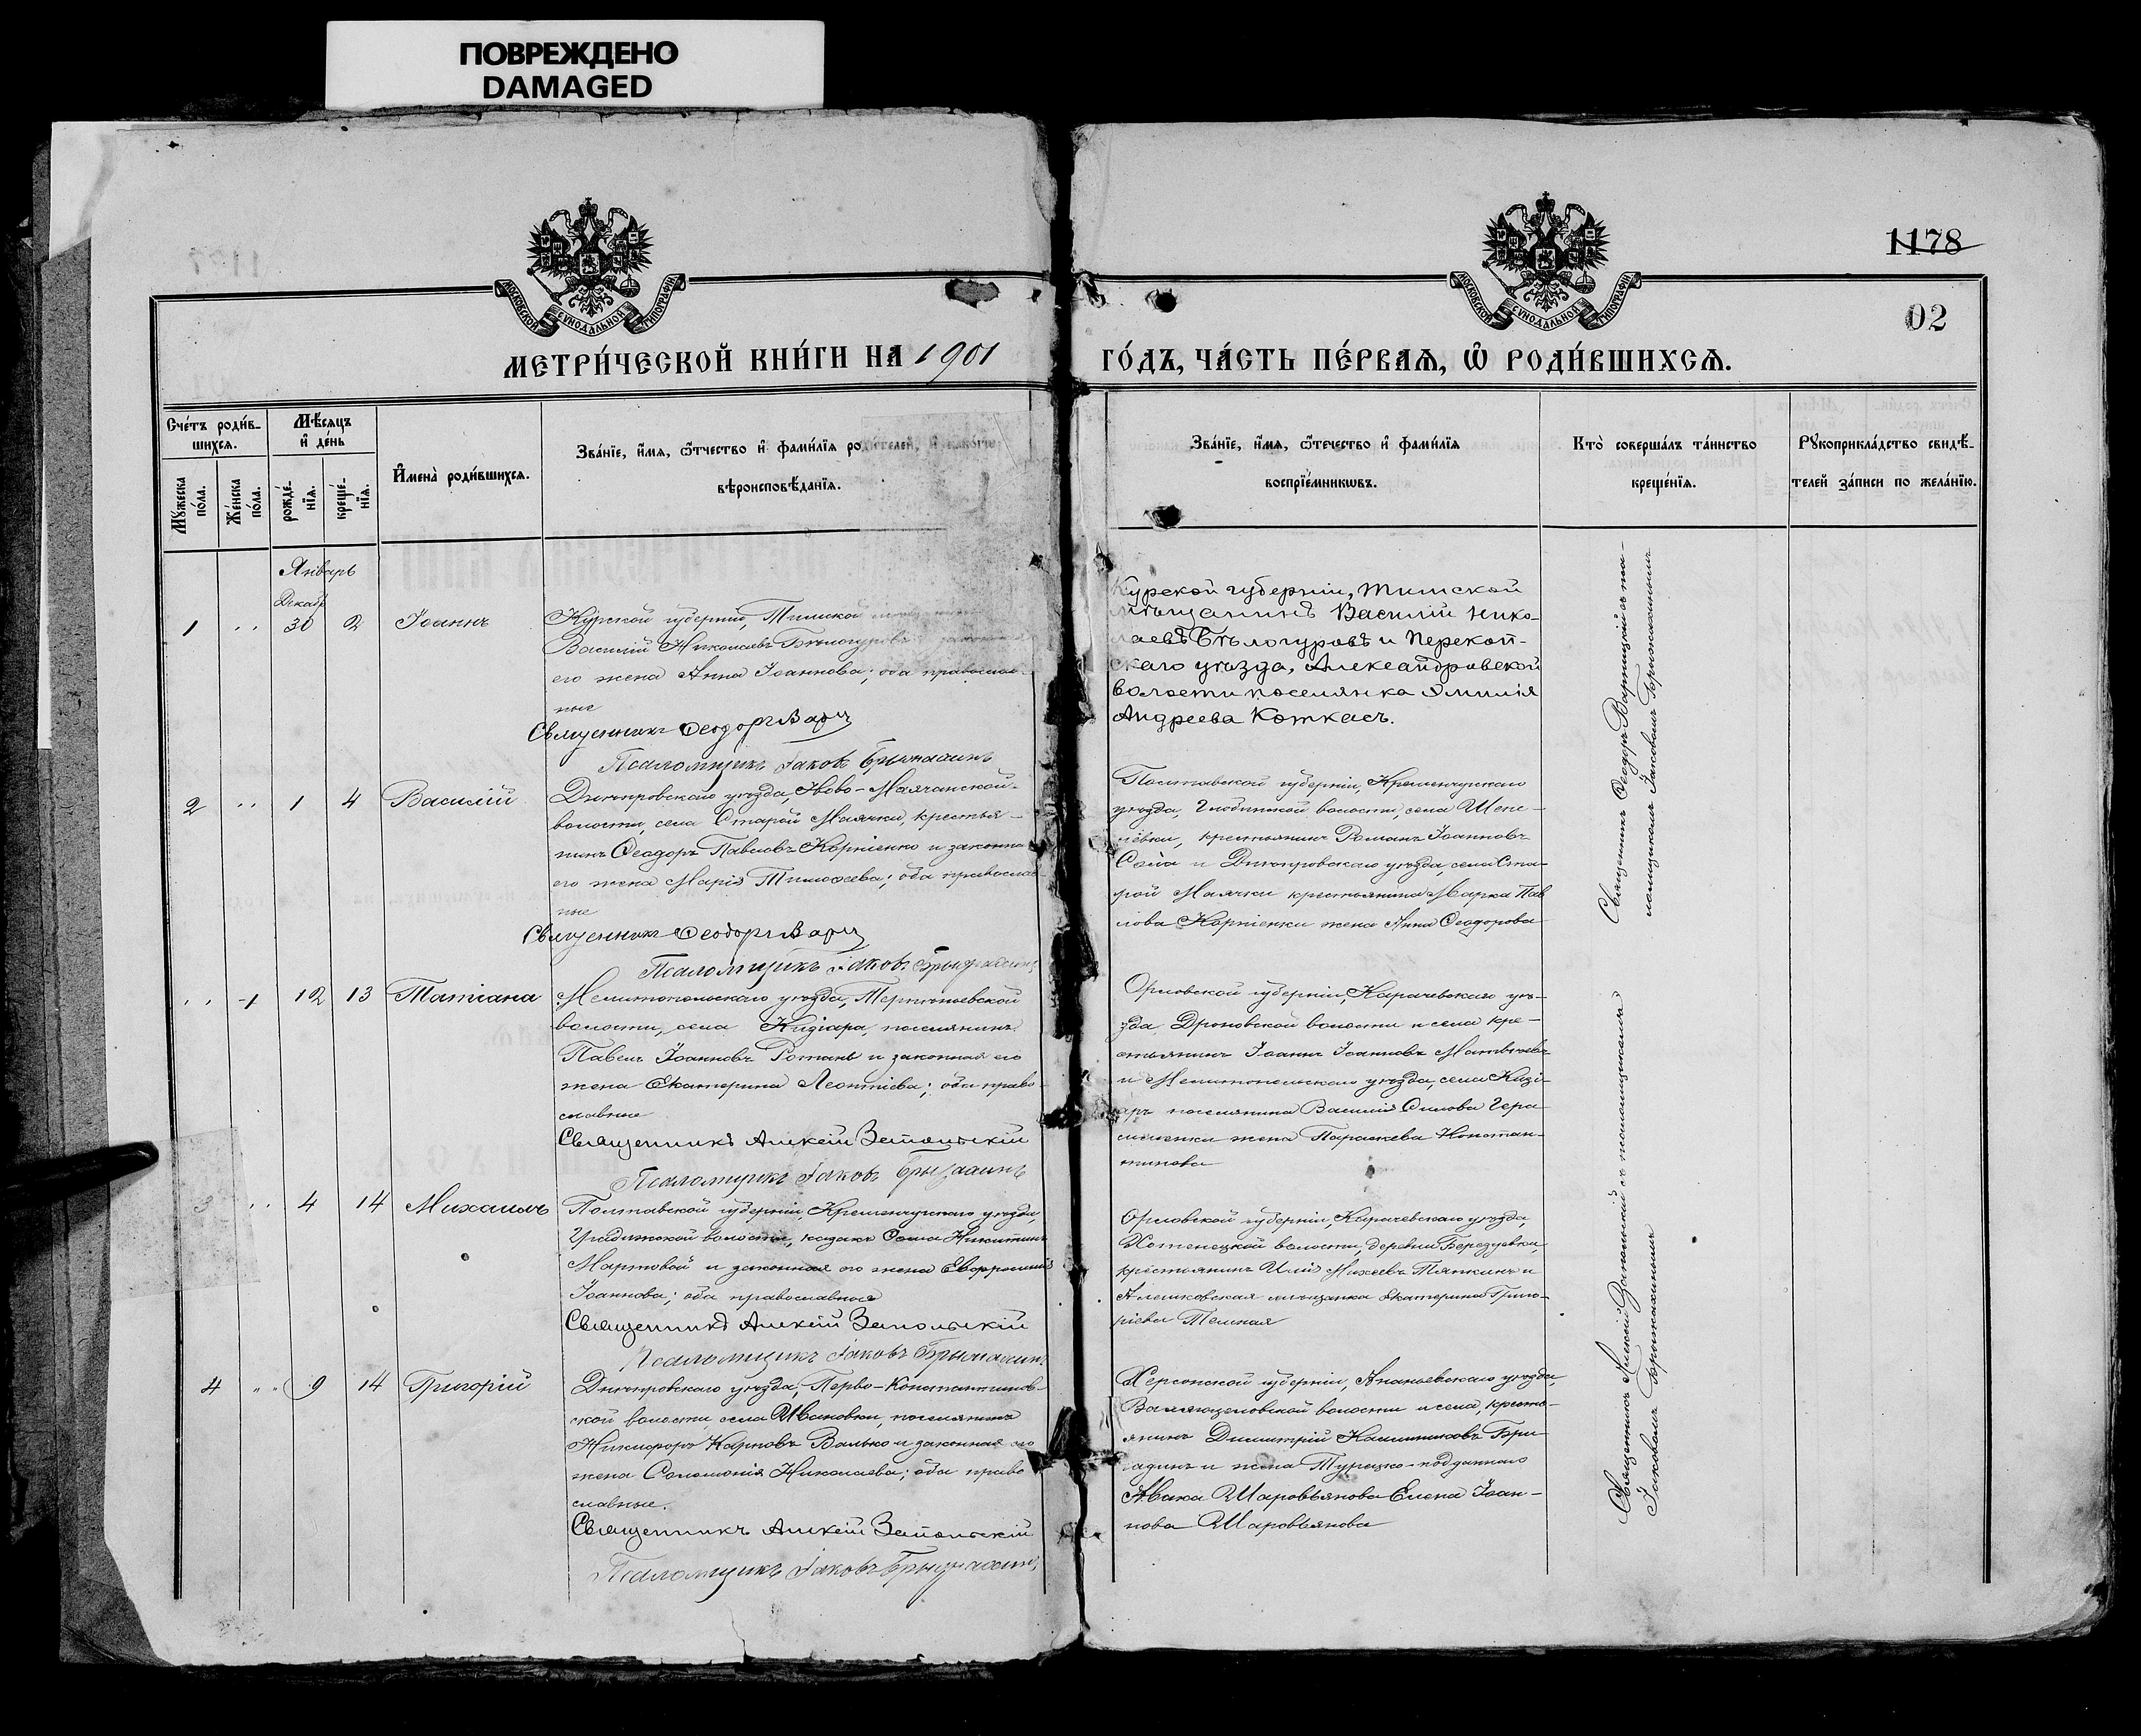 ПОВРЕЖДЕНО
DAMAGED
1178
02
МОСКОВСКОЙ СѴНОДАЛЬНОЙ ТИПОГРАФІИ
МОСКОВСКОЙ СѴНОДАЛЬНОЙ ТИПОГРАФІИ
МЕТРИ́ЧЕСКОЙ КНИ́ГИ НА 1901
ГО́ДЪ, ЧА́СТЬ ПЕ́РВАѦ, Ѡ РОДИ́ВШИХСѦ.
Сче́тъ роди́в-
шихсѧ.
Мꙋ́жеска
по́ла.
Же́нска
по́ла.
Мѣ́сѧцъ
и҆ де́нь
рожде́-
нїѧ.
креще́-
нїѧ.
И҆мена̀ роди́вшихсѧ.
Зва́нїе, и҆́мѧ, ѻ҆́тчество и҆ фами́лїѧ роди́телей, и҆ како́гѡ
вѣроисповѣ́данїѧ.
Зва́нїе, и҆́мѧ, ѻ҆́течество и҆ фами́лїѧ
воспрїе́мникѡвъ.
Кто̀ соверша́лъ та́инство
креще́нїѧ.
Рꙋкоприкла́дство свидѣ́-
телей за́писи по жела́нїю.
Январь
Декабр
1 " 30 2 Іоаннъ
Курской губерніи, Тимской
Василій Николаевъ Бѣлогуровъ
его жена Анна Іоаннова; оба православ-
ные
Священникъ Ѳеодоръ Варн
Псаломщикъ Іаковъ
Курской губерніи, Тимской
мѣщанинъ Василій Нико-
лаевъ Бѣлогуровъ и Перекоп-
скаго уѣзда, Александровской
волости поселянка Эмилія
Андреева Коткасъ.
2 " 1 4 Василій
Днѣпровскаго уѣзда, Ново-Маячанской
волости, села Старой Маячки, крестья-
нинъ Ѳеодоръ Павловъ Корніенко и законна
его жена Марія Тимоѳеева; оба православ
ные
Священникъ Ѳеодоръ Варн
Псаломщикъ Іаковъ
Полтавской губерніи, Кременчугскаго
уѣзда, волости, села
крестьянинъ Романъ Іоанновъ
и Днѣпровскаго уѣзда, села Ста-
рой Маячки крестьянина Марка Пав
лова Корніенки жена Анна Ѳеодорова
Священникъ Ѳеодоръ Варницкій съ пса-
ломщикомъ Іаковомъ
" 1 12 13 Татіана
Мелитопольскаго уѣзда, Терпѣньевской
волости, села Кизіара, поселянинъ
Павелъ Іоанновъ и законная его
жена Екатерина Леонтіева; оба право-
славные
Священникъ Алексій Запольскій
Псаломщикъ Іаковъ
Орловской губерніи, Карачевскаго уѣ-
зда, Дроновской волости и села кре-
стьянинъ Іоаннъ Іоанновъ Матвѣевъ
и Мелитопольскаго уѣзда, села Кизі-
аръ поселянина Василія Гера
сименки жена Параскева Констан-
тинова
3 " 4 14 Михаилъ
Полтавской губерніи, Кременчугскаго уѣзда,
волости, казакъ Никитинъ
Мартовой и законная его жена Евфросинія
Іоаннова; оба православные
Священникъ Алексій Запольскій
Псаломщикъ Іаковъ
Орловской губерніи, Карачевскаго уѣзда,
волости, деревни
крестьянинъ Михеевъ Тяпкинъ и
Алешковская мѣщанка Екатерина Григо-
рьева
4 " 9 14 Григорій
Днѣпровскаго уѣзда, Перво-Константинов-
ской волости села Ивановки, поселянинъ
Никифоръ Карповъ Валько и законная его
жена Соломонія Николаева; оба право
славные.
Священникъ Алексій Запольскій
Псаломщикъ Іаковъ
Херсонской губерніи, Ананьевскаго уѣзда,
волости и села, кресть-
янинъ Димитрій Калинниковъ Бри
гадинъ и жена Турецко-подданнаго
Шаровьянова Елена Іоан-
нова Шаровьянова
Священникъ Алексій Запольскій съ псаломщикомъ
Іаковомъ